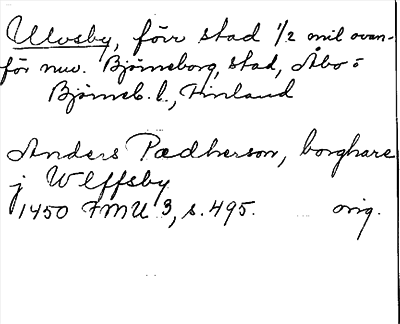 Ulvsby, förr stad 1/2 mil ovan-
för nuv. Björneborg, stad, Åbo o
Björneb. l., Finland
Anders Pædherson, borghare
j Wlffsby
1450 FMU 3, s. 495. orig.